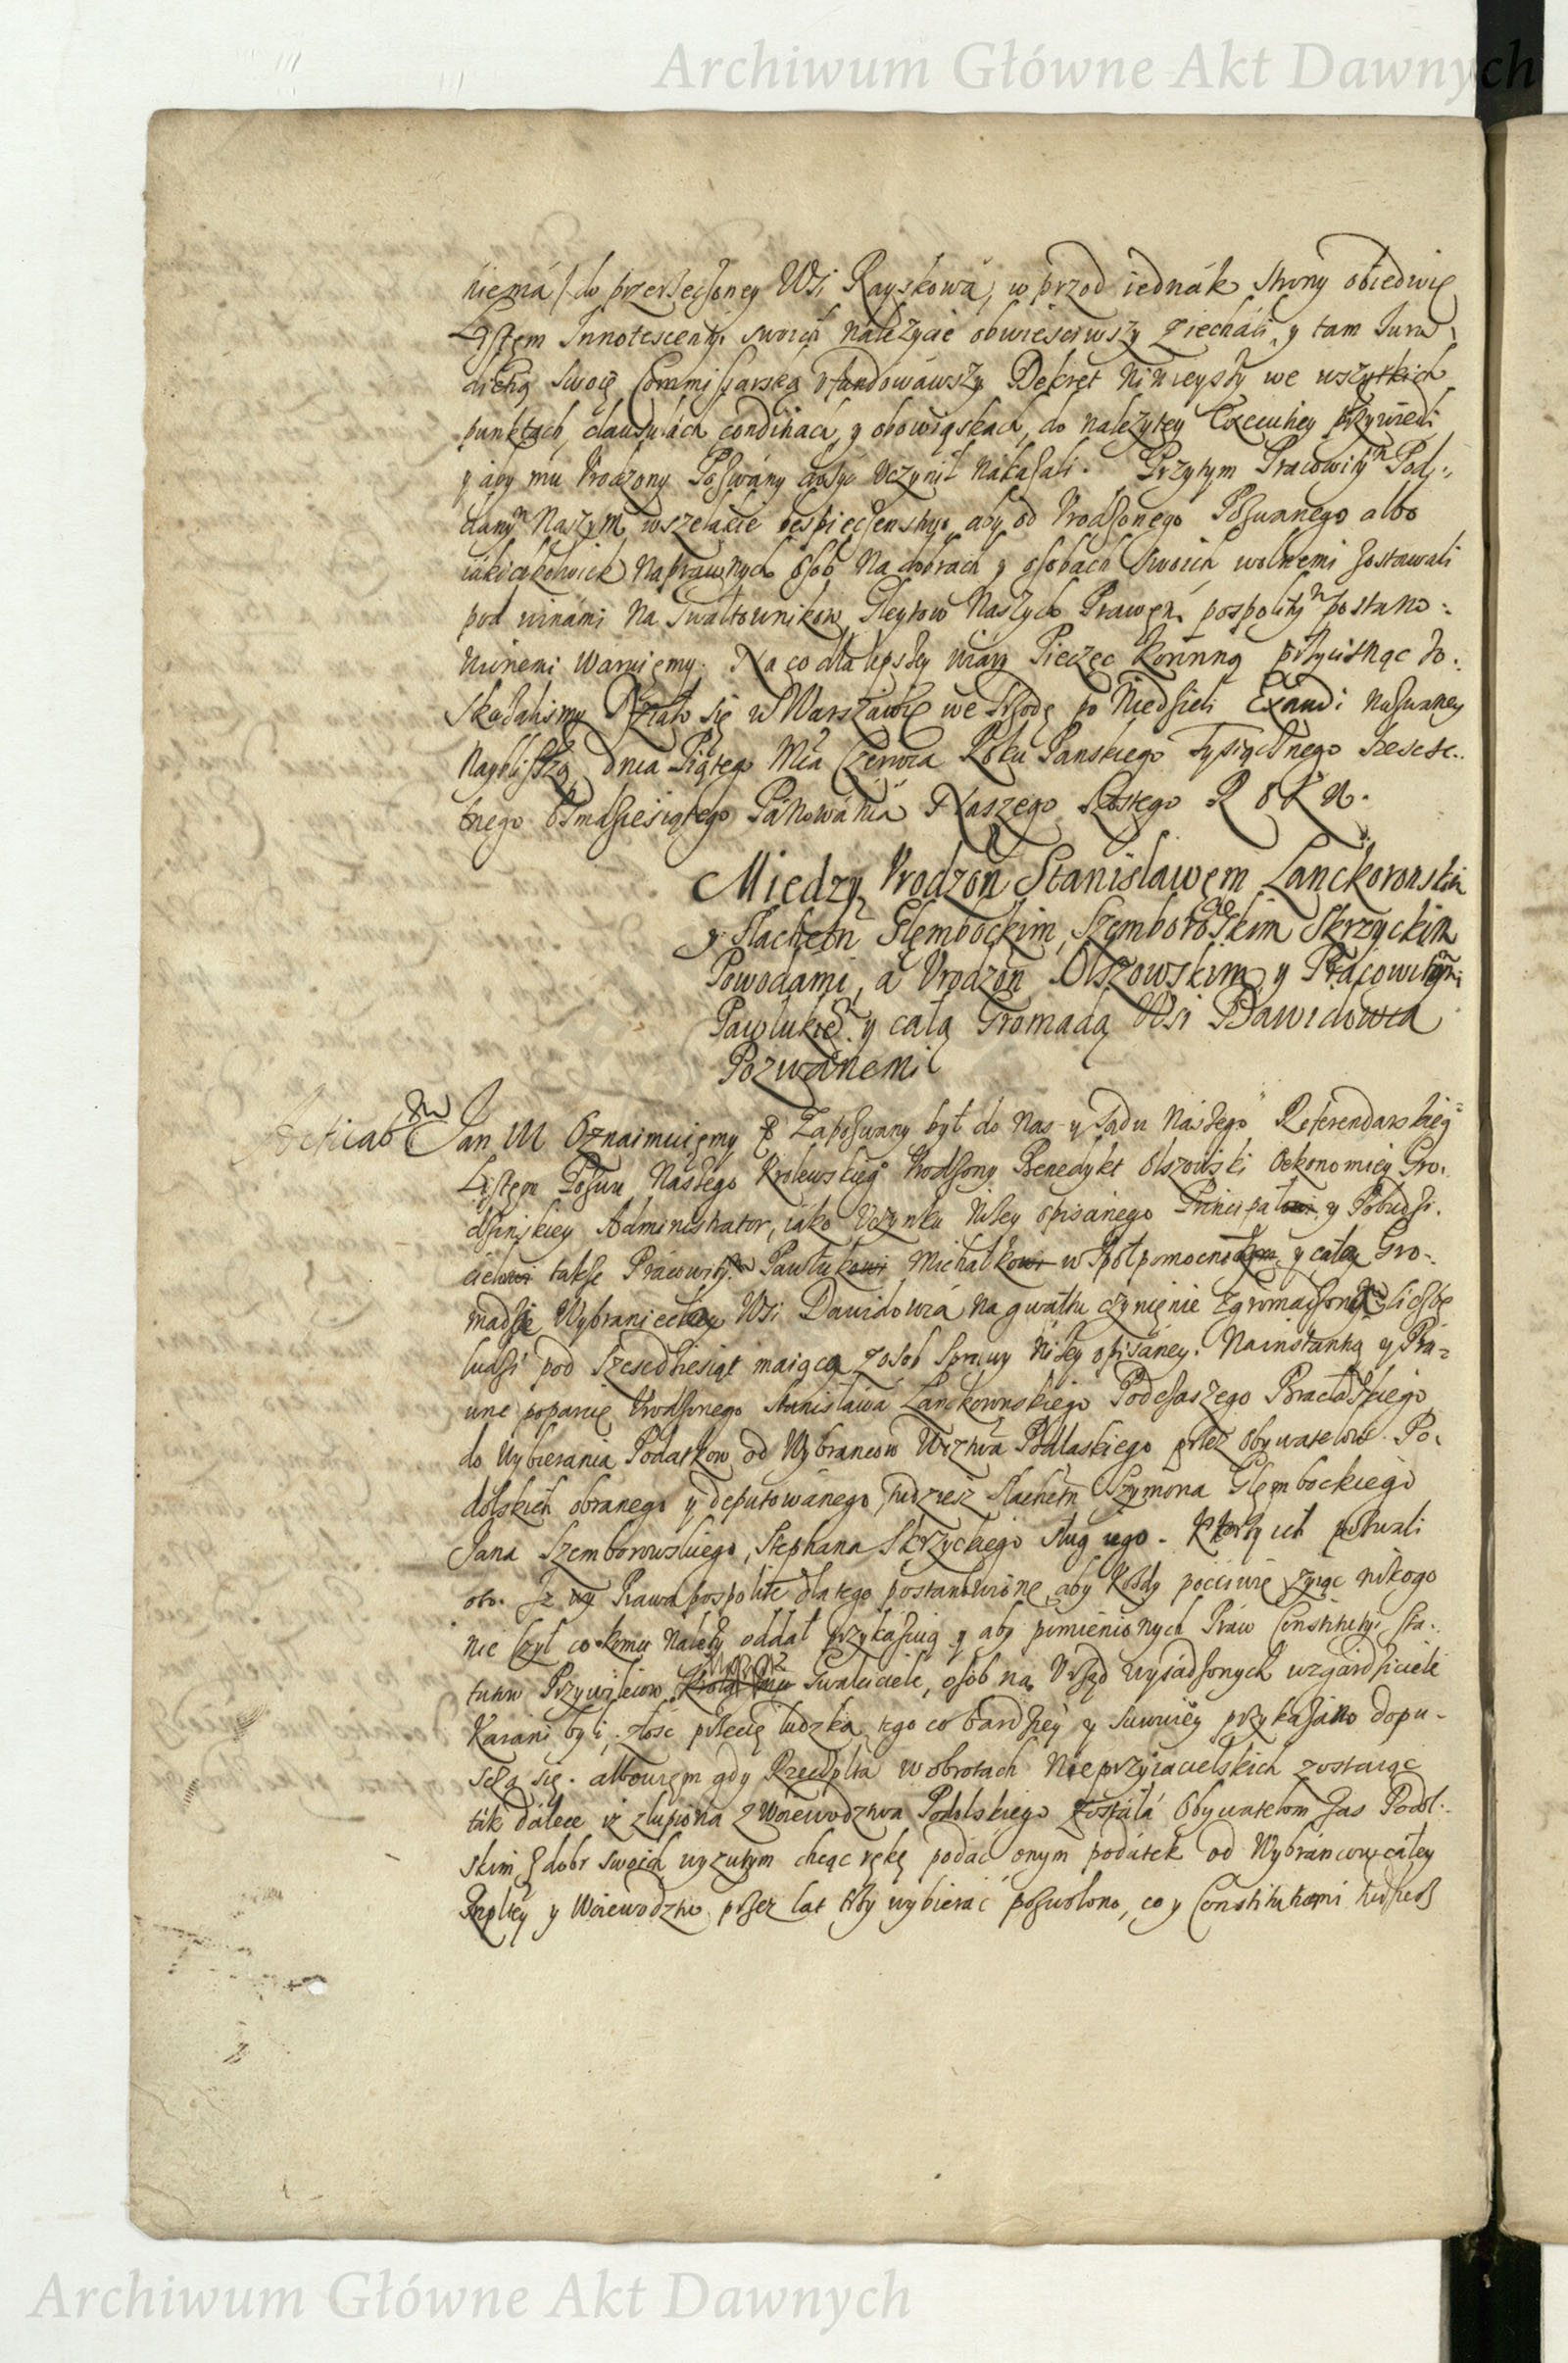 Archiwum Główne Akt Dawnych
niemá / do przerzeczoney Wsi Rayskowá, w przod iednák strony obiedwie
Listem Innotescenti swoich należycie obwieściwszy ziecháli, y tam Jurys
dictią swoię Commissarską ufundowáwszy Dekret ninieyszy we wszytkich
punktách, clausulách conditiach, y obowiąskach, do należytey Executiey przywiedli
y aby mu Vrodzony Pozwány dosyć uczynił nákazáli. Przytym Pracowitym Pod,,
danym Naszym, wszelákie bespieczenstwo aby od Vrodzonego Pozwanego albo
iakichkolwiek naprawnych osob na dobrach y osobach swoich wolnemi zostawali
pod winámi na Gwałtownikow Gleytow Naszych Prawem pospolitym postano:
wionemi waruiemy. Na co dla lepszey wiáry Pieczęc Koronną przycisnąc ro:
skazalismy Działo się w Warszawie we Srzodę po Niedzieli Exaudi nazwaney
nayblisszą dnia Piątego Mca Czerwca Roku Panskiego Tysiącznego Szescse..
tnego Osmdziesiątego Pánowánia Naszego Szostego Roku.
Między Vrodzon Stanisławem Lanckoronskim
y Slachetn Głembockim, Szemborowskim Skrzyckim
Powodami, á Vrodzon Olszowskim y Pracowitymi
Pawlukiem y całą Gromadą Wsi Dawidowia
Pozwánemi
Jan III Oznaimuiemy Zapozwany był do Nas y Sądu Nászego Referendarskieg
Listem Pozwu Nászego Krolewskieg Vrodzony Benedykt Olszowski Oekonomiey Gro.
dzinskiey Administrator, iáko Uczynku niżey opisánego Principał y Pobudzi.
ciel także Prácowity Pawluk Michałko w Społpomocnik y cała Gro-
madzie Wybranieckiey Wsi Dawidowiá na gwałtu czynienie zgromadzony liczbę
ludzi pod szescdziesiąt maiącą z osob sprawy niżey opisáney. Na instantią y Prá=
wne poparcie Vrodzonego Stanisława Lanckoronskiego Podczaszego Bracłáwskiego
do wybierania Podatkow od Wybrancow Wdztwa Podlaskiego przez Obywatelow Po,
dolskich obranego y deputowánego, tudziesz Slachetn Szymona Głembockiego
Jana Szemborowskiego, Stephana Skrzyckiego sług iego. Ktorych pozwali
oto. Iz Prawa pospolite dla tego postanowione, aby kożdy pocciwie żyiąc nikogo
nie co komu należy oddał przykázuią y aby pomienionych Praw Constitutyi Sta:
tutow Przywileiow Gwałciciele, osob na Urząd wysádzonych wzgárdziciele
karáni byli, złość przecię ludzka, tego co bardziey y surowiey przykazano dopu-
scza się. albowiem gdy Rzeczplta w obrotach Nieprzyiacielskich zostaiąc
ták dálece iż złupiona z Woiewodztwa Podolskiego zostáłá Obywatelom zas Podol:.
skim z dobr swoich wyzutym chcąc rękę podáć onym podatek od Wybráncow cáłey
Rzpltey y Woiewodztw przez lat trzy wybieráć pozwolono, co y Constitutiami tudziesz
Archiwum Główne Akt Dawnych